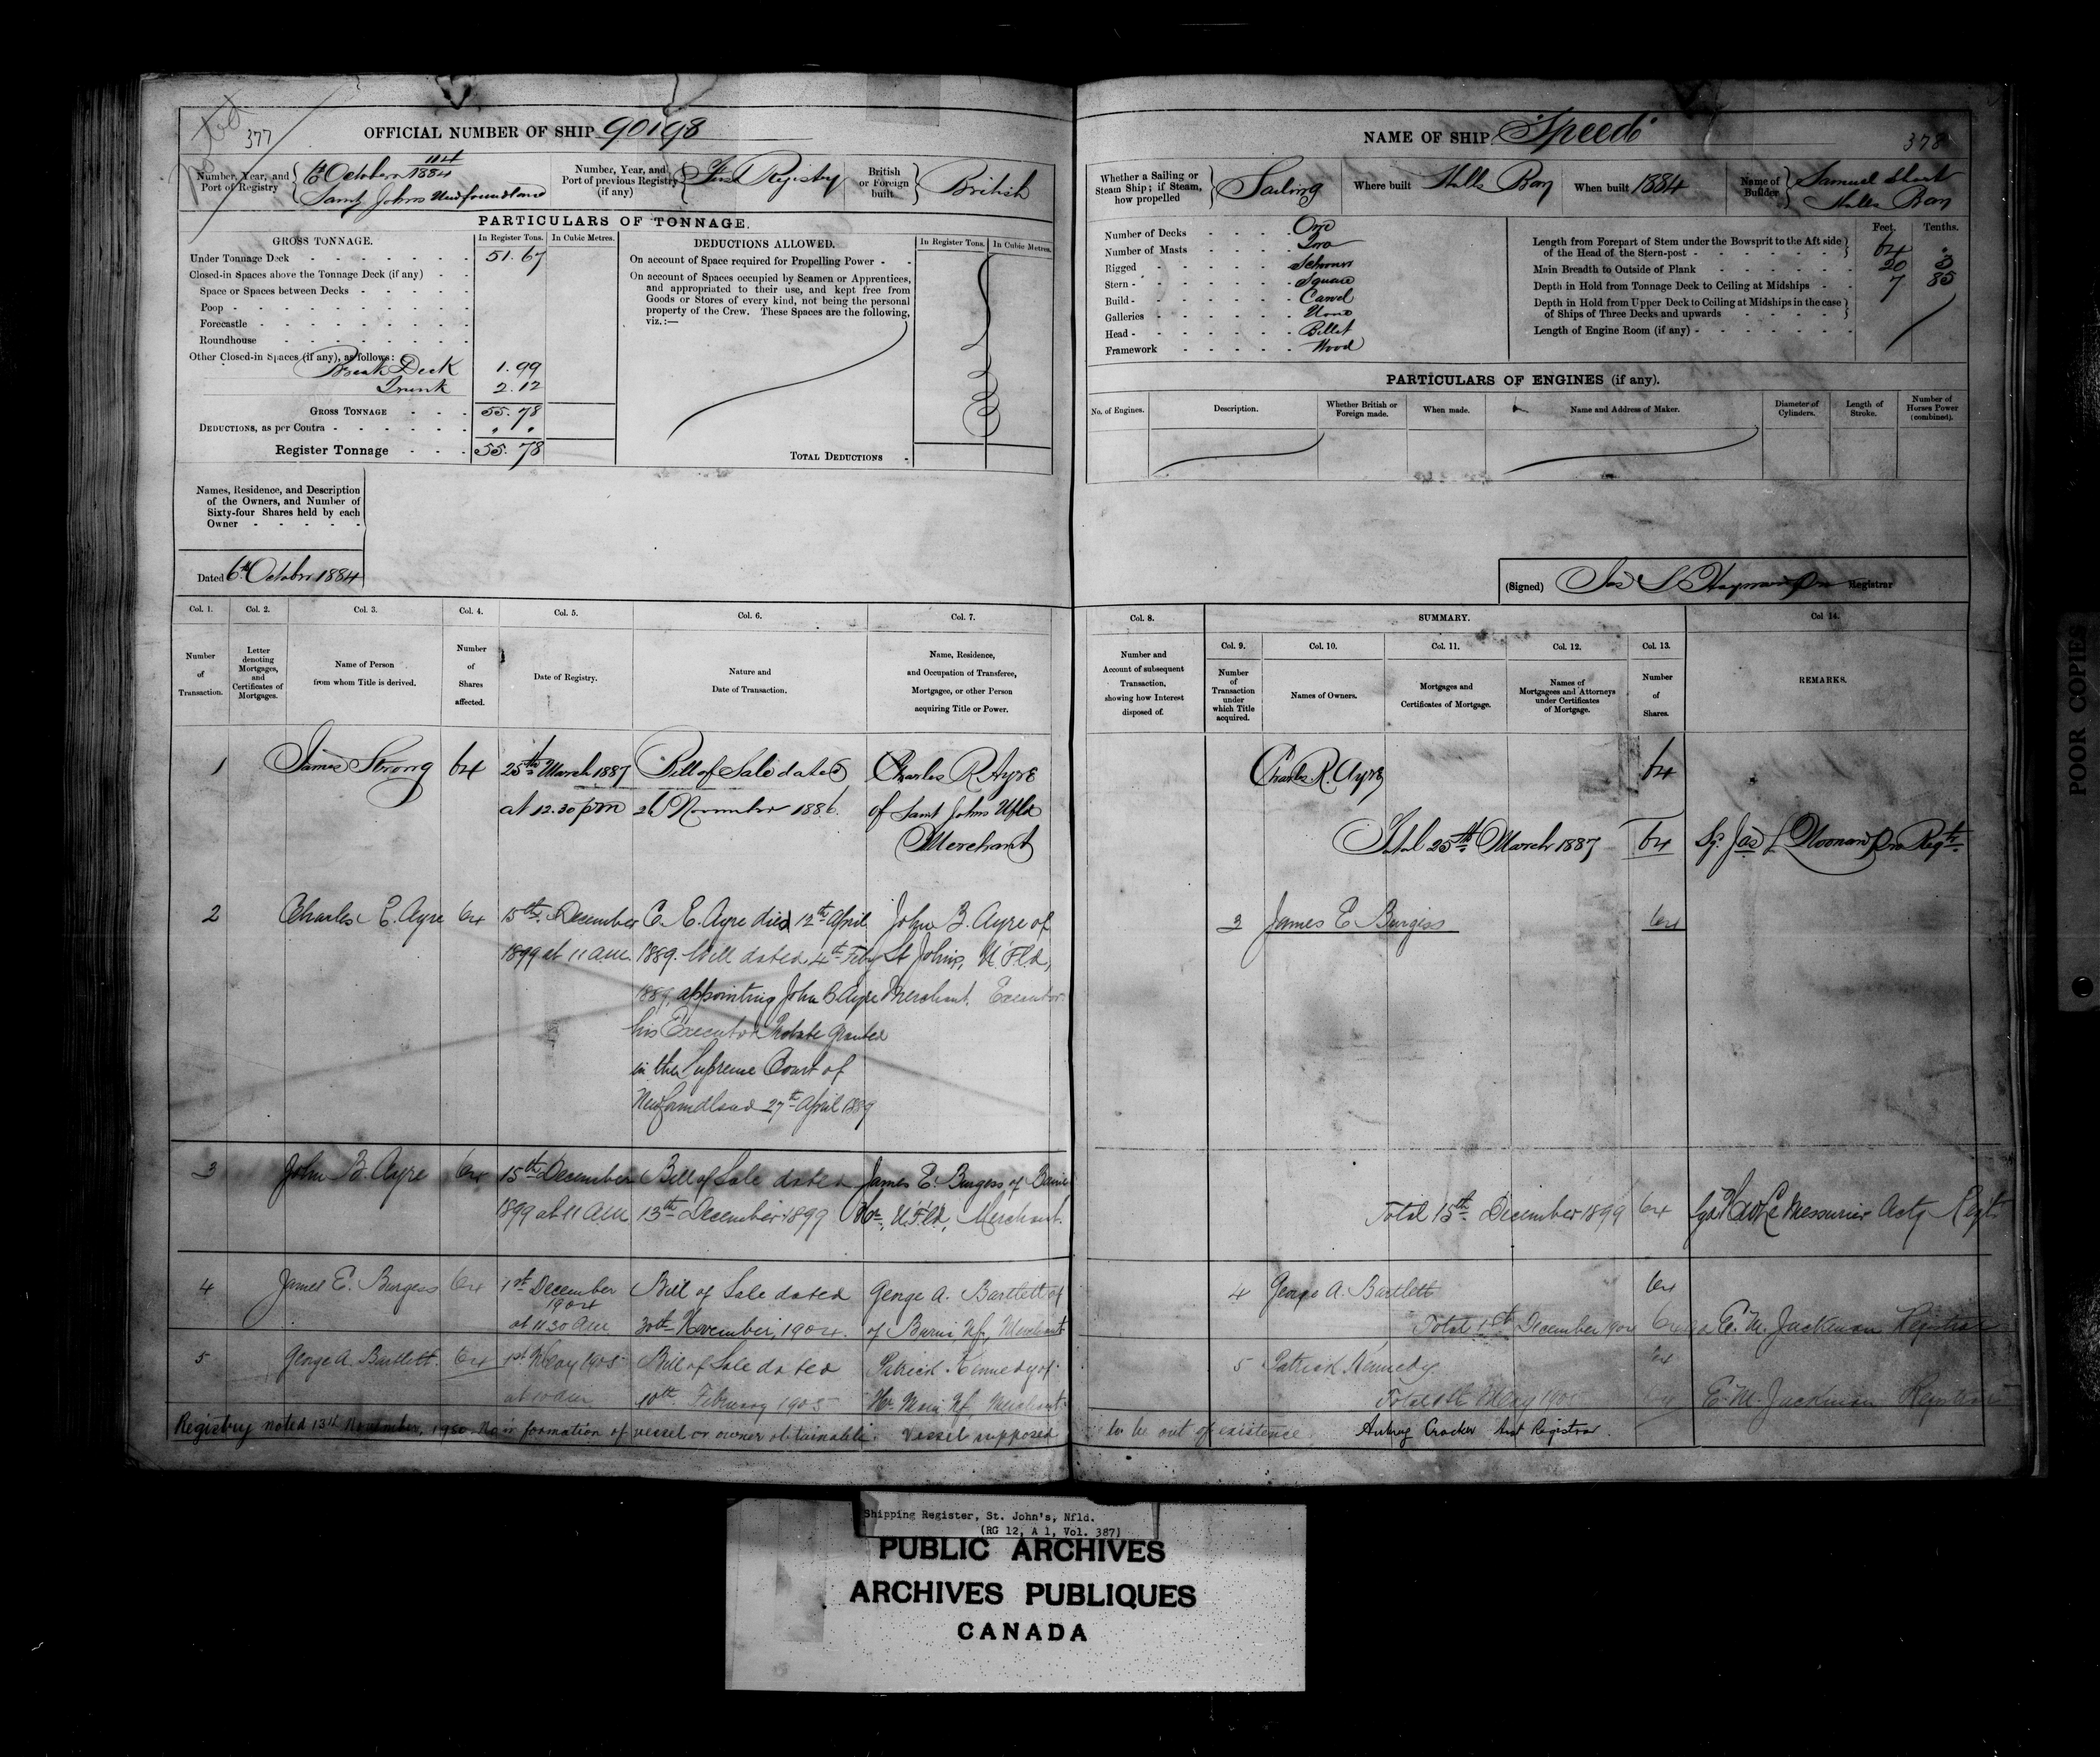 377
OFFICIAL NUMBER OF SHIP 90198
Number, Year, and Port of Registry
114
6th October 1884
Saint Johns Newfoundland
Number, Year, and Port of previous Registry (if any)
First Registry
British or Foreign built
British
PARTICULARS OF TONNAGE.
GROSS TONNAGE.
In Register Tons.
In Cubic Metres.
DEDUCTIONS ALLOWED.
In Register Tons.
In Cubic Metres.
Under Tonnage Deck 51.67
Closed-in Spaces above the Tonnage Deck (if any)
Space or Spaces between Decks
Poop
Forecastle
Roundhouse
Other Closed-in Spaces (if any), as follows:
Break Deck 1.99
Trunk 2.12
GROSS TONNAGE 55.78
DEDUCTIONS, as per Contra
Register Tonnage 55.78
On account of Space required for Propelling Power
On account of Spaces occupied by Seamen or Apprentices,
and appropriated to their use, and kept free from
Goods or Stores of every kind, not being the personal
property of the Crew. These Spaces are the following,
viz.:—
TOTAL DEDUCTIONS
Names, Residence, and Description
of the Owners, and Number of
Sixty-four Shares held by each
Owner
Dated 6th October 1884
NAME OF SHIP "Speed"
378
Whether a Sailing or Steam Ship; if Steam, how propelled
Sailing
Where built Halls Bay
When built 1884
Name of Builder
Samuel Short
Halls Bay
Number of Decks One
Number of Masts Two
Rigged Schooner
Stern Square
Build Carvel
Galleries None
Head Billet
Framework Wood
Feet. Tenths.
Length from Forepart of Stem under the Bowsprit to the Aft side
of the Head of the Stern-post 64 .
Main Breadth to Outside of Plank 20 3
Depth in Hold from Tonnage Deck to Ceiling at Midships 7 85
Depth in Hold from Upper Deck to Ceiling at Midships in the case
of Ships of Three Decks and upwards
Length of Engine Room (if any)
PARTICULARS OF ENGINES (if any).
No. of Engines.
Description.
Whether British or Foreign made.
When made.
Name and Address of Maker.
Diameter of Cylinders.
Length of Stroke.
Number of Horses Power (combined).
(Signed)
Registrar
Col. 1. Col. 2. Col. 3. Col. 4. Col. 5. Col. 6. Col. 7.
Number of Transaction.
Letter denoting Mortgages, and Certificates of Mortgages.
Name of Person from whom Title is derived.
Number of Shares affected.
Date of Registry.
Nature and Date of Transaction.
Name, Residence, and Occupation of Transferee, Mortgagee, or other Person acquiring Title or Power.
Col. 8. SUMMARY. Col. 14.
Number and Account of subsequent Transaction, showing how Interest disposed of.
Col. 9. Col. 10. Col. 11. Col. 12. Col. 13.
Number of Transaction under which Title acquired.
Names of Owners.
Mortgages and Certificates of Mortgage.
Names of Mortgagees and Attorneys under Certificates of Mortgage.
Number of Shares.
REMARKS.
1 James Strong 64 25th March 1887 Bill of Sale dated Charles R. Ayre
at 12.30 pm 26 November 1886. of Saint Johns Nfld
Merchant
Charles R. Ayre 64
Total 25th March 1887 64
2 Charles E. Ayre 64 15th December C. E. Ayre died 12th April John B. Ayre of
1899 at 11 a.m. 1889. Will dated 4th Feby St Johns, N.F.ld,
1889, appointing John B Ayre Merchant. Executor
his Executor Probate Granted
in the Supreme Court of
Newfoundland 27th April 1889
3 James E Burgess 64
3 John B. Ayre 64 15th December Bill of Sale dated James E. Burgess of
1899 at 11 a.m. 13th December 1899 N.F.ld, Merchant.
Total 15th December 1899 64 LeMessurier Actg Regtr
4 James E. Burgess 64 1st December Bill of Sale dated George A. Bartlett of
1904
at 11 30 AM 30th November, 1904. of Burin Nf, Merchant
4 George A. Bartlett 64
Total 1st December 1904 64 E. M. Jackman Registrar
5 George A. Bartlett. 64 1st May 1905 Bill of Sale dated Patrick Kennedy of
at 10 am 10th February 1905 Hr Main Nf. Merchant
5 Patrick Kennedy 64
Total 1st May 1905 64 E. M. Jackman Registrar
Registry noted 13th November, 1950. No information of vessel or owner obtainable. Vessel supposed
to be out of existence. Aubrey Crocker Asst Registrar.
POOR COPIE
Shipping Register, St. John's, Nfld.
(RG 12, A 1, Vol. 387)
PUBLIC ARCHIVES
ARCHIVES PUBLIQUES
CANADA